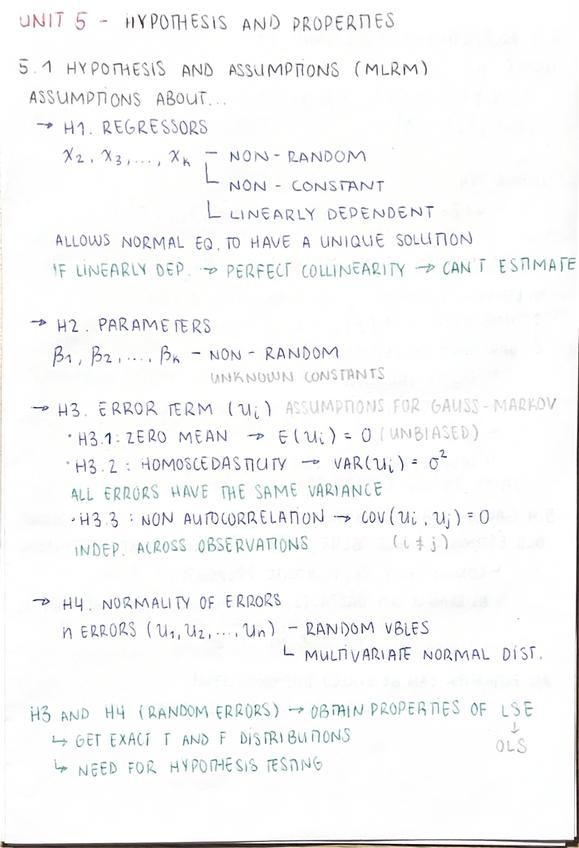 UNIT 5 - HYPOTHESIS AND PROPERTIES
5.1 HYPOTHESIS AND ASSUMPTIONS (MLRM)
ASSUMPTIONS ABOUT...
→ H1. REGRESSORS
X2, X3, ..., Xk - NON-RANDOM
NON-CONSTANT
LINEARLY DEPENDENT
ALLOWS NORMAL EQ. TO HAVE A UNIQUE SOLUTION
IF LINEARLY DEP. → PERFECT COLLINEARITY → CAN'T ESTIMATE
→ H2. PARAMETERS
β1, β2, ..., βk - NON-RANDOM
UNKNOWN CONSTANTS
→ H3. ERROR TERM (Ui) ASSUMPTIONS FOR GAUSS-MARKOV
· H3.1: ZERO MEAN → E(Ui) = 0 (UNBIASED)
· H3.2: HOMOSCEDASTICITY → VAR(Ui) = σ²
ALL ERRORS HAVE THE SAME VARIANCE
· H3.3: NON AUTOCORRELATION → COV(Ui, Uj) = 0
INDEP. ACROSS OBSERVATIONS (i ≠ j)
→ H4. NORMALITY OF ERRORS
n ERRORS (U1, U2, ..., Un) - RANDOM VBLES
MULTIVARIATE NORMAL DIST.
H3 AND H4 (RANDOM ERRORS) → OBTAIN PROPERTIES OF LSE
↳ GET EXACT T AND F DISTRIBUTIONS ↓
OLS
↳ NEED FOR HYPOTHESIS TESTING